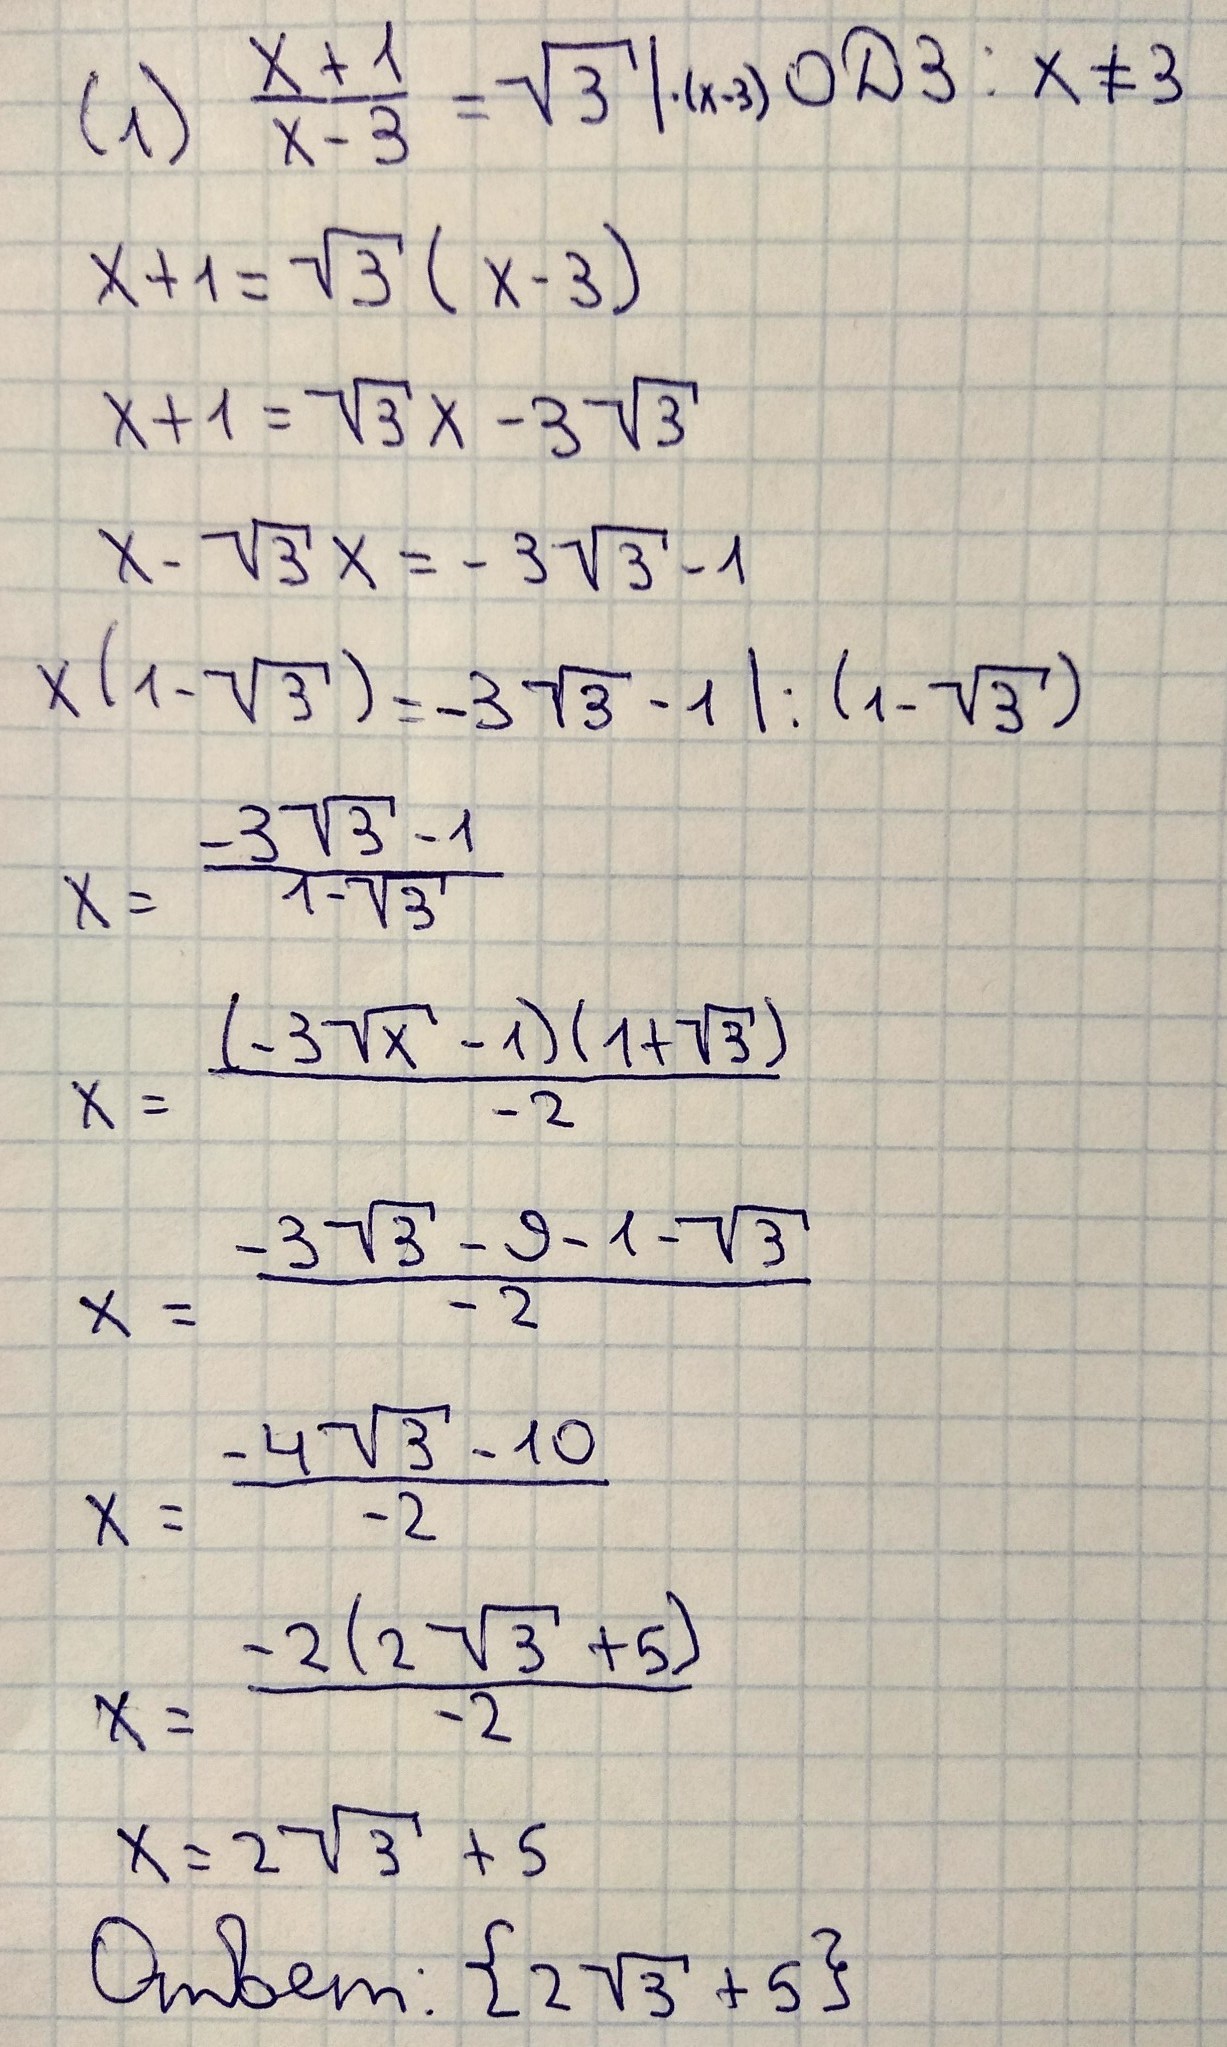 (1) (x+1)/(x-3) = √3 |·(x-3) ОДЗ: x ≠ 3
x+1 = √3 (x-3)
x+1 = √3x - 3√3
x - √3x = -3√3 - 1
x(1-√3) = -3√3 - 1 | : (1-√3)
x = (-3√3 - 1)/(1-√3)
x = ((-3√x - 1)(1+√3))/(-2)
x = (-3√3 - 9 - 1 - √3)/(-2)
x = (-4√3 - 10)/(-2)
x = (-2(2√3 + 5))/(-2)
x = 2√3 + 5
Ответ: {2√3 + 5}